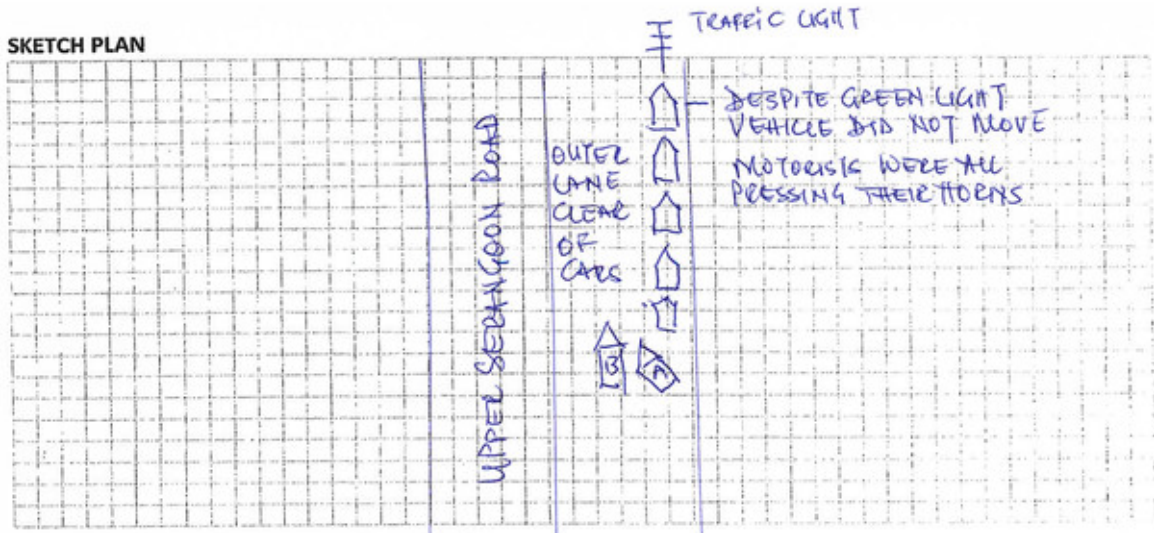 SKETCH PLAN
TRAFFIC LIGHT
DESPITE GREEN LIGHT
VEHICLE DID NOT MOVE
MOTORISTS WERE ALL
PRESSING THEIR HORNS
UPPER SERANGOON ROAD
OUTER
LANE
CLEAR
OF
CARS
B
A